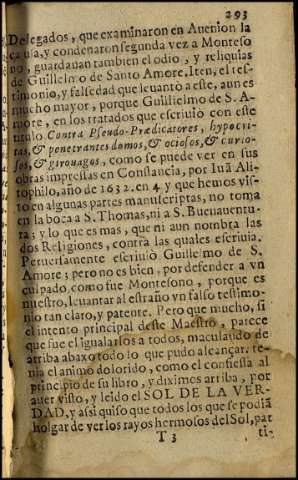 293
Delegados, que examinaron en Auenion la
causa, y condenaron segunda vez a Monteso
no, guardauan tambien el odio, y reliquias
de Guillelmo de Santo Amore. Iten, el tes-
timonio, y falsedad que leuantò a este, aun es
mucho mayor, porque Guillielmo de S. A-
more, en los tratados que escriuiò con este
titulo Contra Pseudo-Prædicatores, hypocri-
tas, & penetrantes domos, & ociosos, & curio-
sos, & girouagos, como se puede ver en sus
obras impressas en Constancia, por Iuã Ali-
tophilo, año de 1632. en 4. y que hemos vis-
to en algunas partes manuscriptas, no toma
en la boca a S. Thomas, ni a S. Buenauentu-
ra; y lo que es mas, que ni aun nombra las
dos Religiones, contra las quales escriuia.
Peruersamente escriuiò Guillelmo de S.
Amore; pero no es bien, por defender a vn
culpado, como fue Montesono, porque es
nuestro, leuantar al estraño vn falso testimo-
nio tan claro, y patente. Pero que mucho, si
el intento principal deste Maestro, parece
que fue el igualarlos a todos, maculando de
arriba abaxo todo lo que pudo alcançar. te-
nia el animo dolorido, como el confiessa al
principio de su libro, y diximos arriba, por
auer visto, y leido el SOL DE LA VER-
DAD, y assi quiso que todos los que se podiã
holgar de ver los rayos hermosos del Sol, par
T 3
ti-